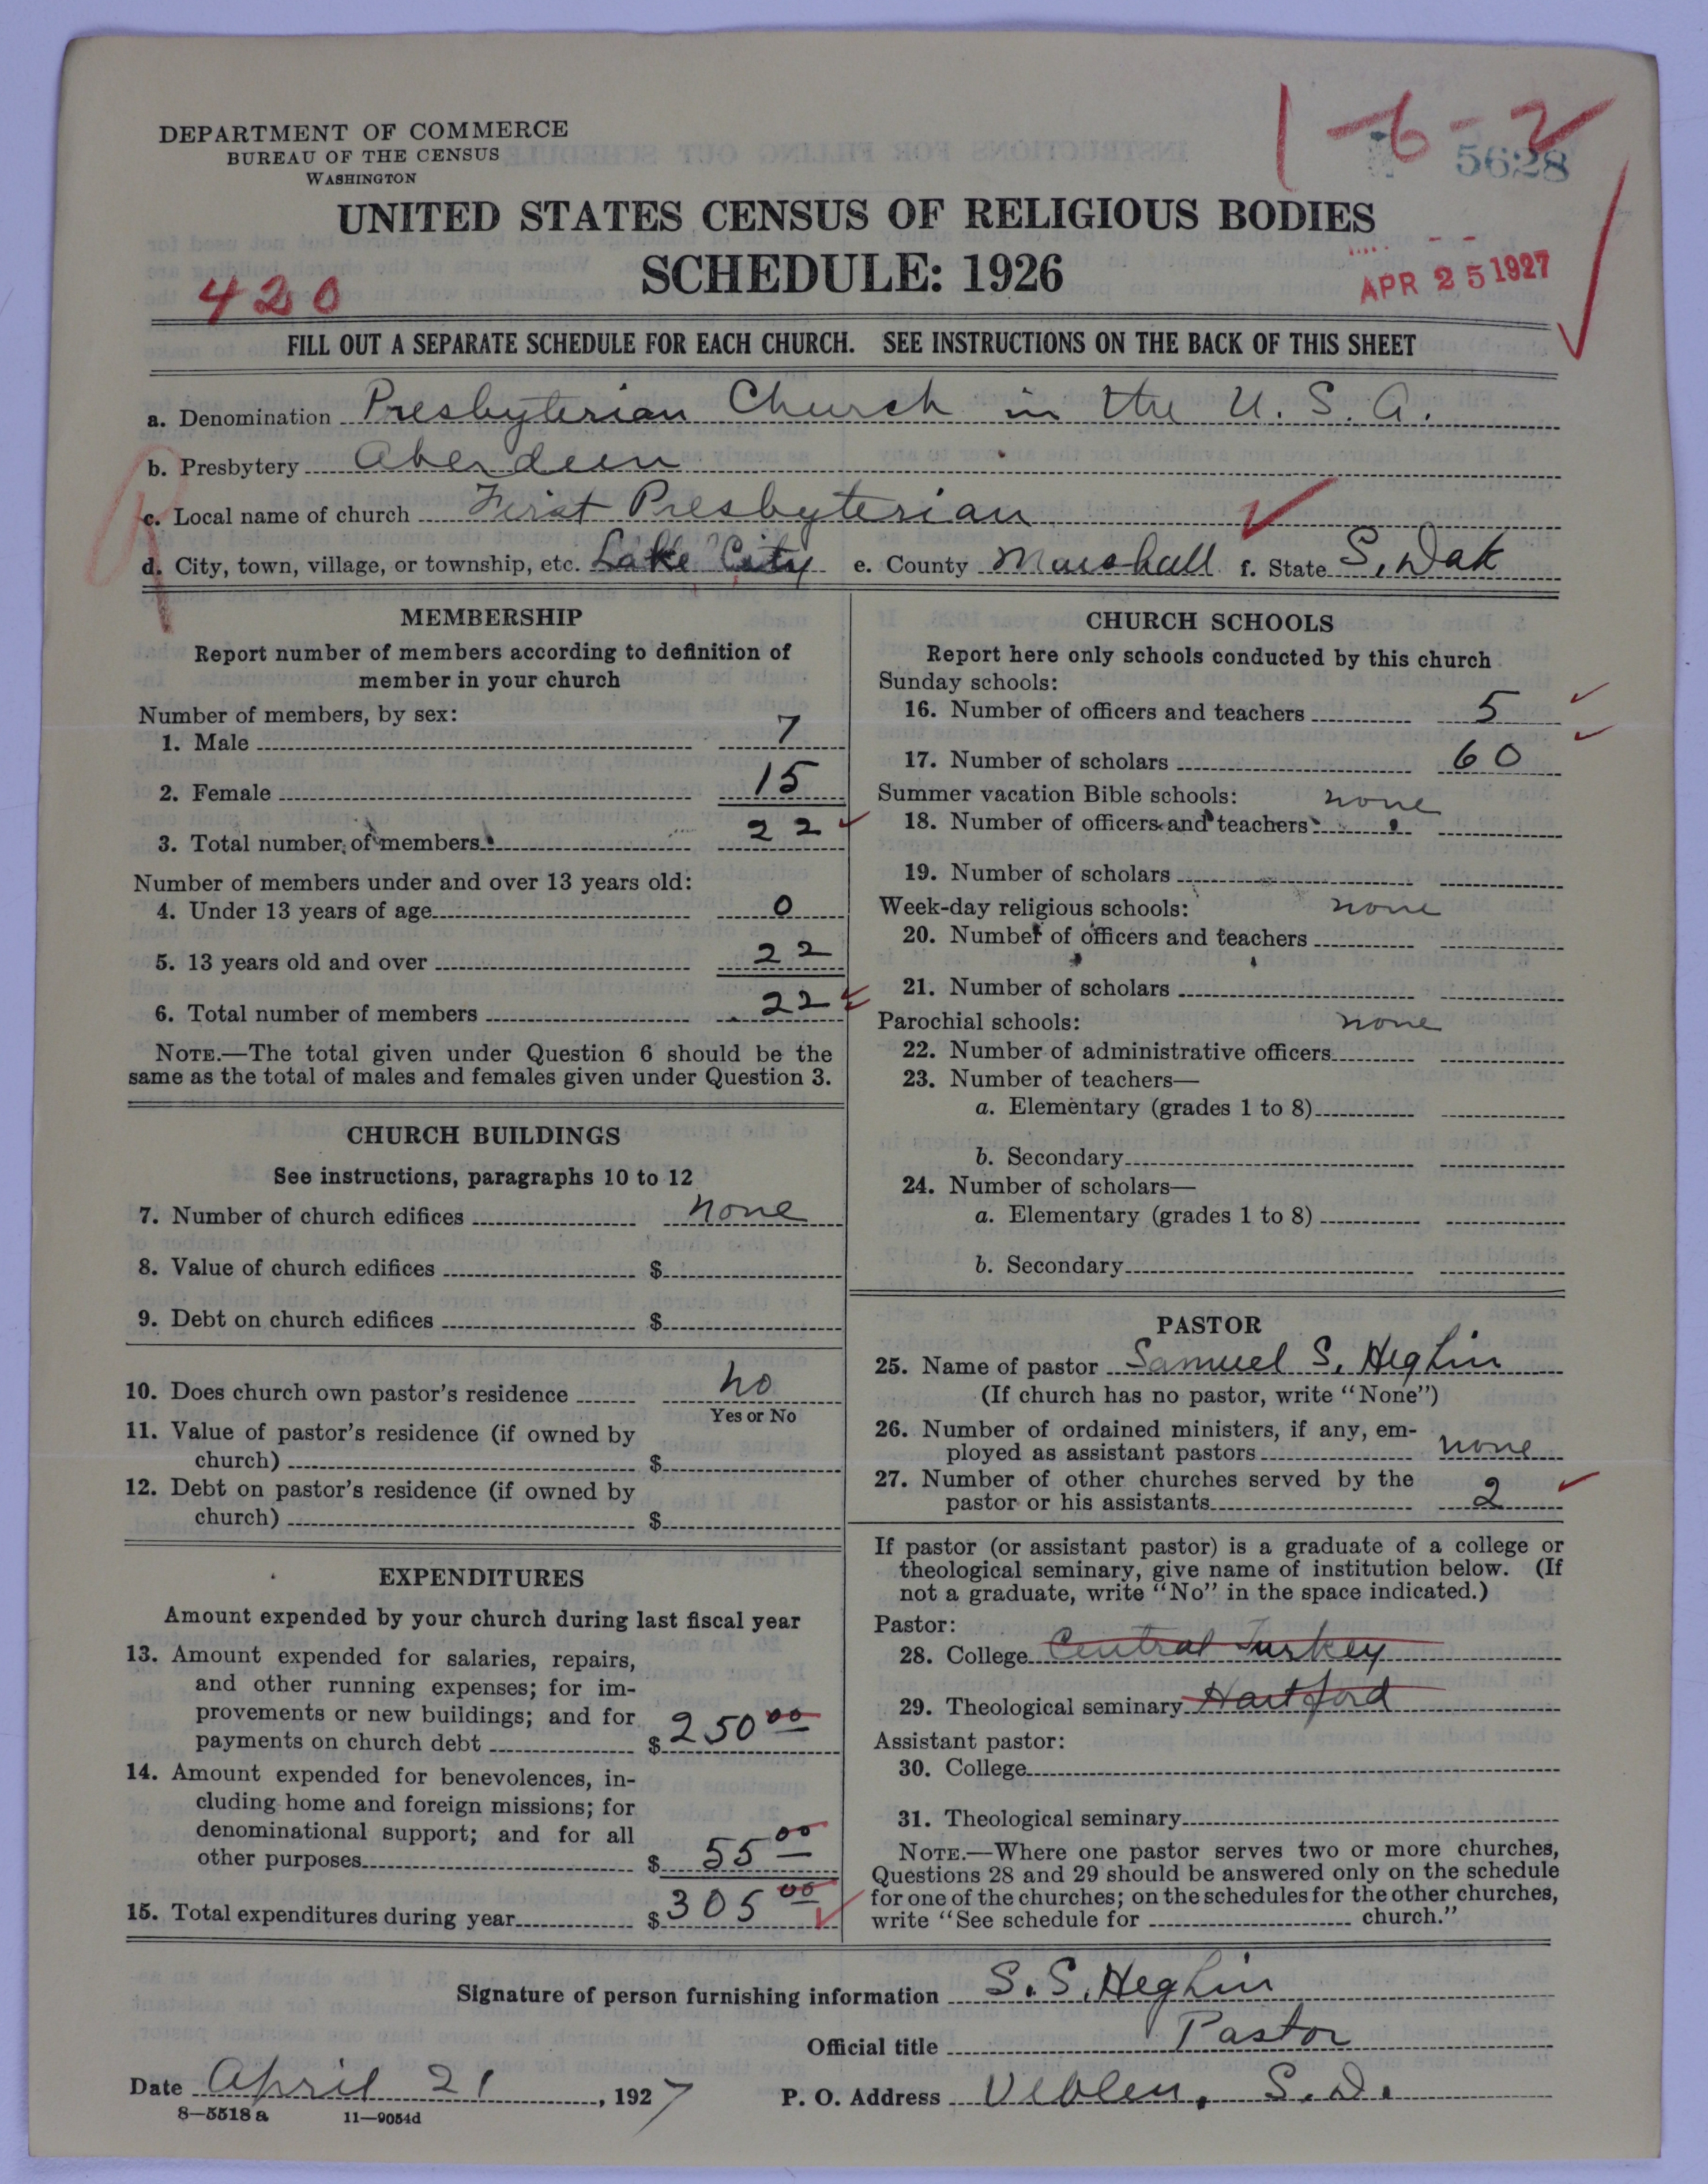 1-6-2
5628
DEPARTMENT OF COMMERCE
BUREAU OF THE CENSUS
WASHINGTON
UNITED STATES CENSUS OF RELIGIOUS BODIES
SCHEDULE: 1926
420
APR 25 1927
FILL OUT A SEPARATE SCHEDULE FOR EACH CHURCH. SEE INSTRUCTIONS ON THE BACK OF THIS SHEET
a. Denomination Presbyterian Church in the U. S. A.
b. Presbytery Aberdeen
c. Local name of church First Presbyterian
d. City, town, village, or township, etc. Lake City e. County Marshall f. State S. Dak
MEMBERSHIP
Report number of members according to definition of
member in your church
Number of members, by sex:
1. Male 7
2. Female 15
3. Total number of members 22
Number of members under and over 13 years old:
4. Under 13 years of age 0
5. 13 years old and over 22
6. Total number of members 22
NOTE.—The total given under Question 6 should be the
same as the total of males and females given under Question 3.
CHURCH BUILDINGS
See instructions, paragraphs 10 to 12
7. Number of church edifices none
8. Value of church edifices $
9. Debt on church edifices $
10. Does church own pastor's residence no
Yes or No
11. Value of pastor's residence (if owned by
church) $
12. Debt on pastor's residence (if owned by
church) $
EXPENDITURES
Amount expended by your church during last fiscal year
13. Amount expended for salaries, repairs,
and other running expenses; for im-
provements or new buildings; and for
payments on church debt $ 250 00
14. Amount expended for benevolences, in-
cluding home and foreign missions; for
denominational support; and for all
other purposes $ 55 00
15. Total expenditures during year $ 305 00
CHURCH SCHOOLS
Report here only schools conducted by this church
Sunday schools:
16. Number of officers and teachers 5
17. Number of scholars 60
Summer vacation Bible schools: none
18. Number of officers and teachers
19. Number of scholars
Week-day religious schools: none
20. Number of officers and teachers
21. Number of scholars
Parochial schools: none
22. Number of administrative officers
23. Number of teachers—
a. Elementary (grades 1 to 8)
b. Secondary
24. Number of scholars—
a. Elementary (grades 1 to 8)
b. Secondary
PASTOR
25. Name of pastor Samuel S. Heghin
(If church has no pastor, write "None")
26. Number of ordained ministers, if any, em-
ployed as assistant pastors none
27. Number of other churches served by the
pastor or his assistants 2
If pastor (or assistant pastor) is a graduate of a college or
theological seminary, give name of institution below. (If
not a graduate, write "No" in the space indicated.)
Pastor:
28. College Central Turkey
29. Theological seminary Hartford
Assistant pastor:
30. College
31. Theological seminary
NOTE.—Where one pastor serves two or more churches,
Questions 28 and 29 should be answered only on the schedule
for one of the churches; on the schedules for the other churches,
write "See schedule for church."
Signature of person furnishing information S. S. Heghin
Official title Pastor
Date April 21, 1927 P. O. Address Veblen, S. D.
8—5518 a 11—9054d